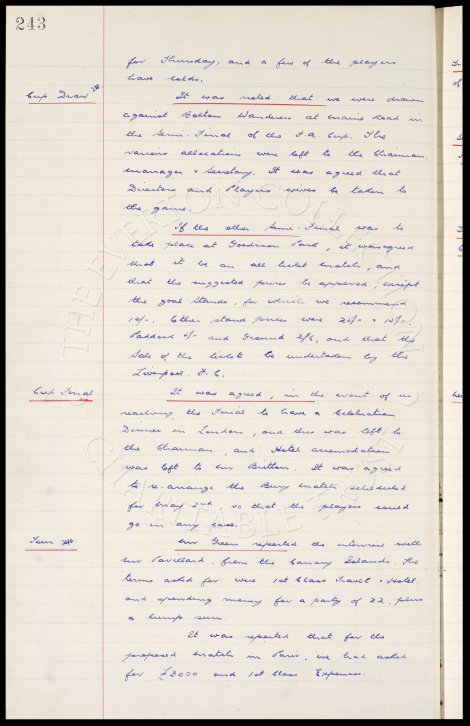 243
for Thursday, and a few of the players
have colds.
Cup Draw
It was noted that we were drawn
against Bolton Wanderers at Maine Road in
the Semi-Final of the F.A. Cup. The
various allocations were left to the Chairman,
Manager & Secretary. It was agreed that
Directors and Players wives be taken to
the game.
If the other Semi-Final was to
take place at Goodison Park, it was agreed
that it be an all ticket match, and
that the suggested prices be approved, except
the Goal Stands, for which we recommend
10/-. Other stand prices were &
Paddock and Ground 2/6, and that the
Sale of the tickets be undertaken by the
Liverpool F.C.
Cup Final
It was agreed, in the event of us
reaching the Final to have a Celebration
Dinner in London, and this was left to
the Chairman, and Hotel accomodation
was left to Mr Britton. It was agreed
to re-arrange the Bury match scheduled
for May 2nd, so that the players could
go in any case.
Tour
Mr Green reported the interview with
Mr from the Canary Islands. The
terms asked for were 1st Class Travel & Hotel
and spending money for a party of 22, plus
a lump sum.
It was reported that for the
proposed match in Paris, we had asked
for £3000 and 1st Class Expenses.
THE EVERTON COLLECTION
CHARITABLE TRUST